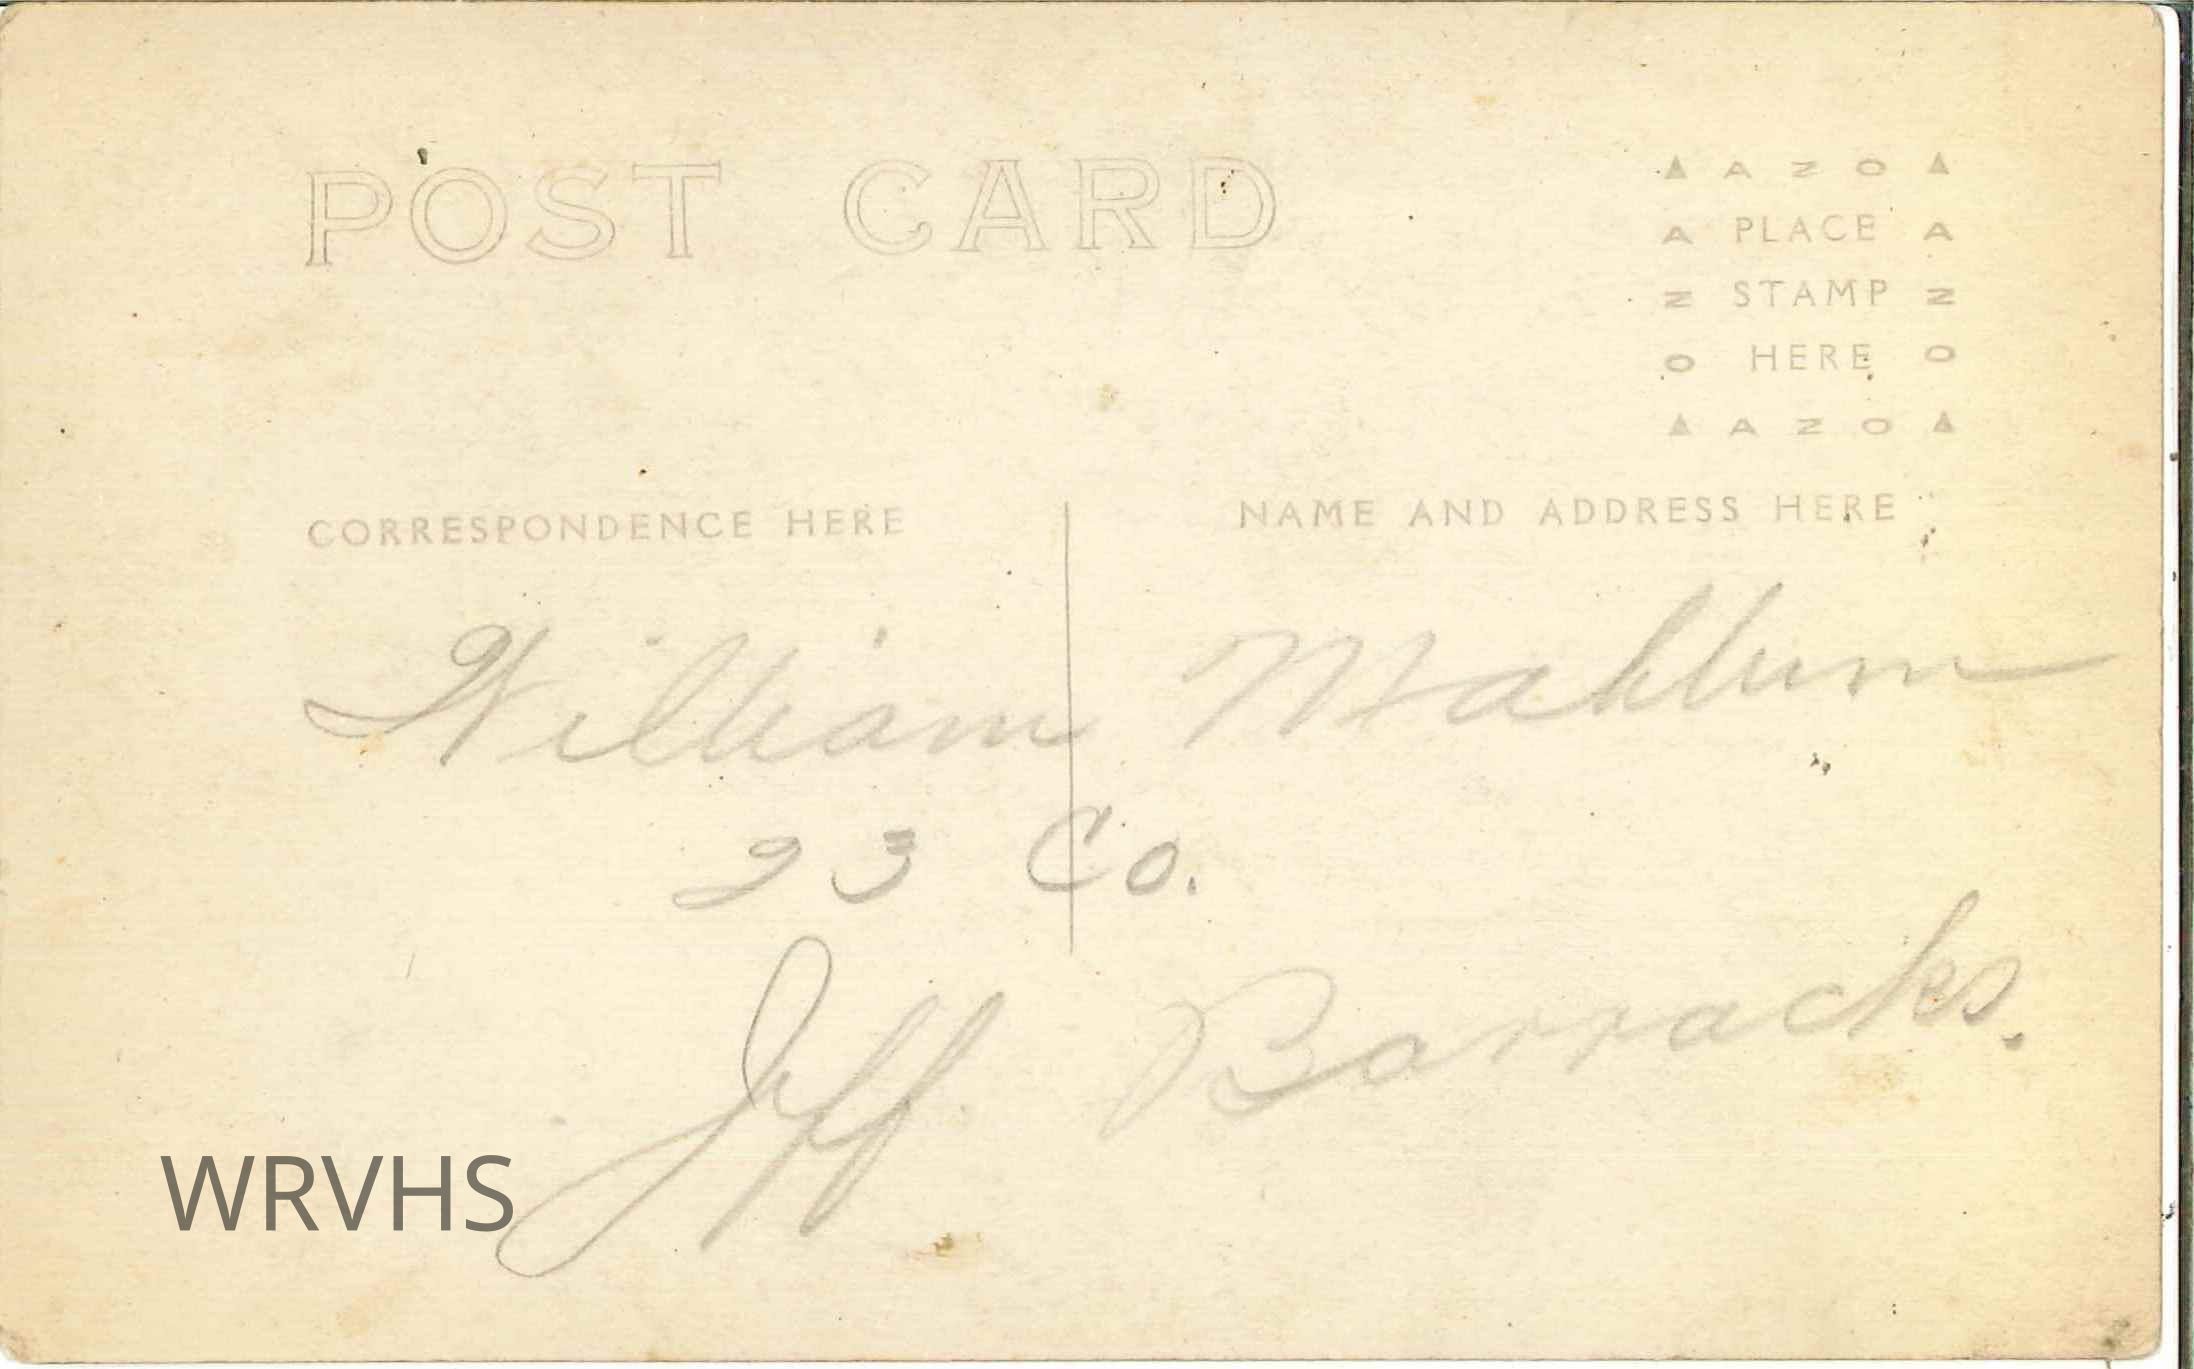 POST CARD
▲ A Z O ▲
A PLACE A
Z STAMP Z
O HERE O
▲ A Z O ▲
CORRESPONDENCE HERE
NAME AND ADDRESS HERE
William
23 Co.
Jeff Barracks.
WRVHS